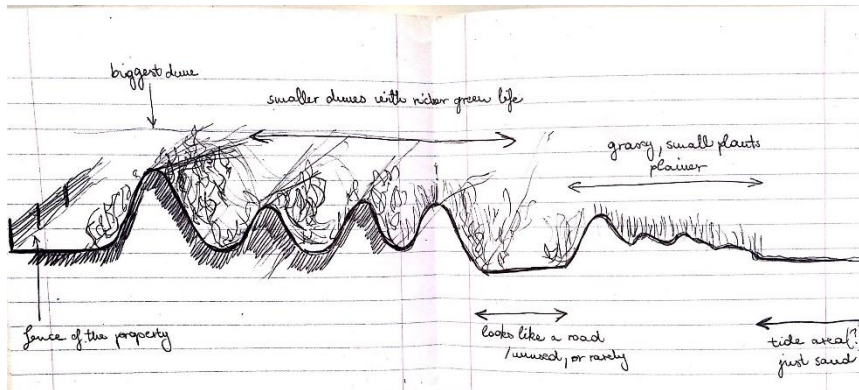 biggest dune
smaller dunes with richer green life
grassy, small plants
plainer
fence of the property
looks like a road
/unused, or rarely
tide area(?)
just sand